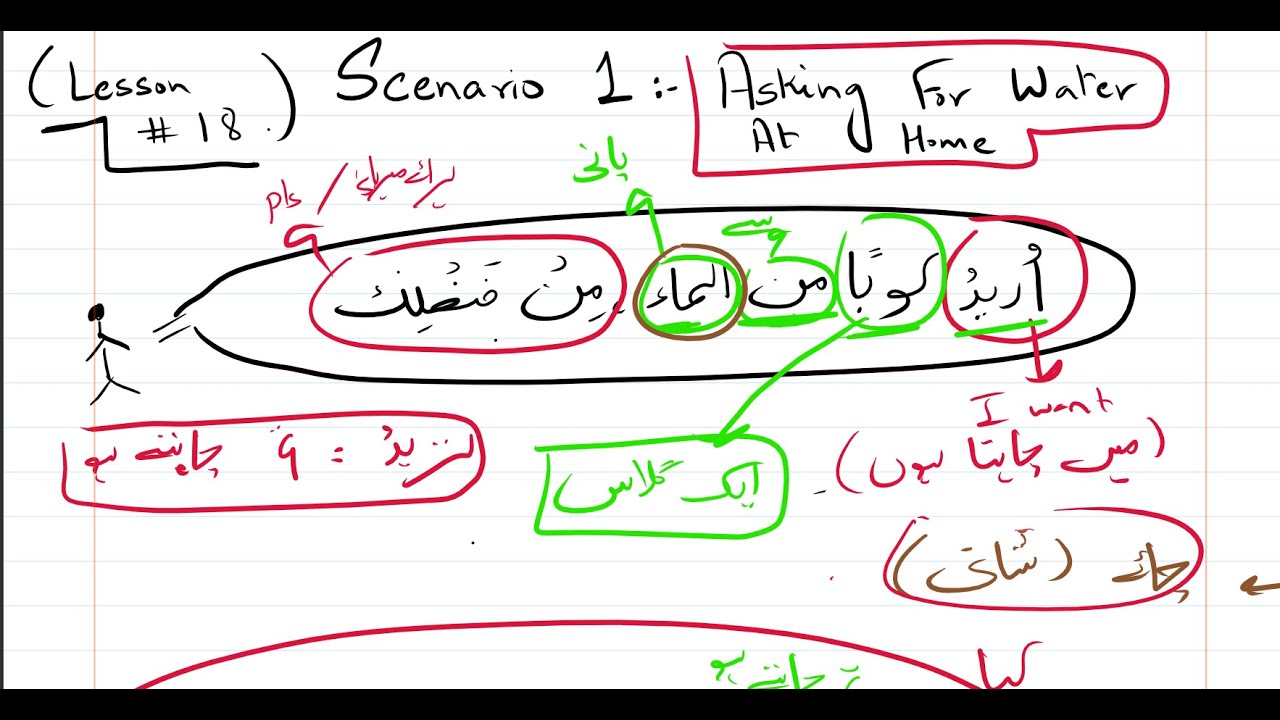 (Lesson #18.) Scenario 1:- Asking For Water At Home
پانی
pls / برائے مہربانی
سے
أُرِيدُ كُوبًا من الماء مِنْ فَضْلِك
I want
(میں چاہتا ہوں)
ایک گلاس
تریدُ = چاہتے ہو
چائے (شائی)
کیا
چاہتے ہو